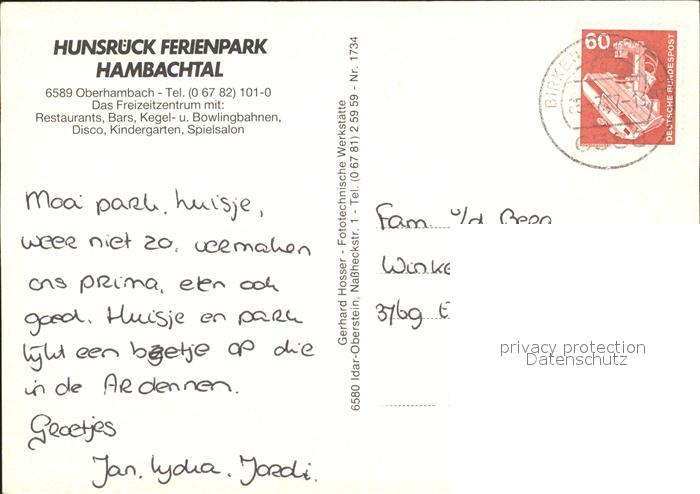 HUNSRÜCK FERIENPARK
HAMBACHTAL
6589 Oberhambach - Tel. (0 67 82) 101-0
Das Freizeitzentrum mit:
Restaurants, Bars, Kegel- u. Bowlingbahnen,
Disco, Kindergarten, Spielsalon
Mooi park, huisje,
weer niet zo, vermaken
ons prima, eten ook
goed. Huisje en park
lijkt een beetje op die
in de Ardennen.
Groetjes
Jan, Lydia, Jordi.
Gerhard Hosser - Fototechnische Werkstätte
6580 Idar-Oberstein, Naßheckstr. 1 - Tel. (0 67 81) 2 59 59 - Nr. 1734
60
DEUTSCHE BUNDESPOST
Fam. v/d Berg
Winke
3769
privacy protection
Datenschutz